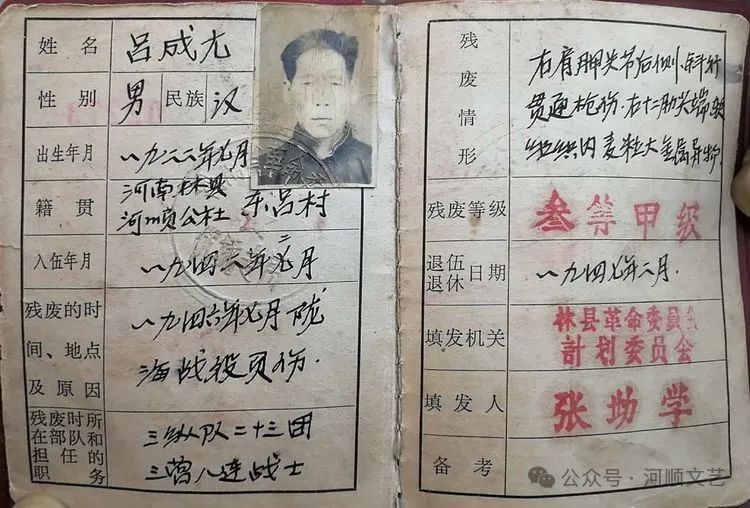 姓名 吕成尤
性别 男 民族 汉
出生年月 一九二二年 月
籍贯 河南林县
河顺公社 东吕村
入伍年月 一九四 年 月
残废的时 一九四六年七月陇
间、地点 海战役负伤.
及原因
残废时所
在部队和 三纵队二十三团
担任的
职务 三营八连战士
残废情形 右肩胛关节后侧.斜行
贯通枪伤.右十二肋尖端软
组织内麦粒大金属异物.
残废等级 叁等甲级
退伍
退休 日期 一九四七年二月.
填发机关 林县革命委员会
計划委员会
填发人 张 学
备考
公众号·河顺文艺